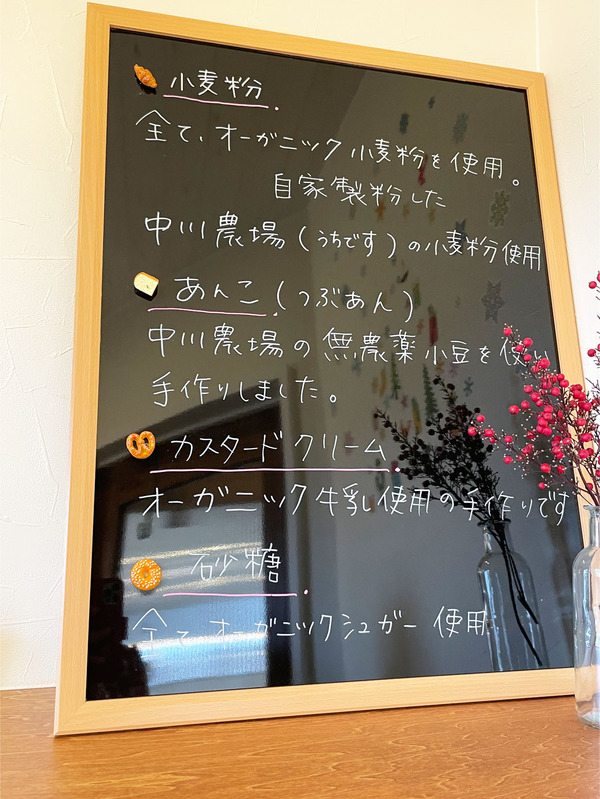 小麦粉.
全て、オーガニック小麦粉を使用。
自家製粉した
中川農場(うちです)の小麦粉使用
あんこ.(つぶあん)
中川農場の無農薬小豆を使い
手作りしました。
カスタードクリーム.
オーガニック牛乳使用の手作りです
砂糖.
全て、オーガニックシュガー使用